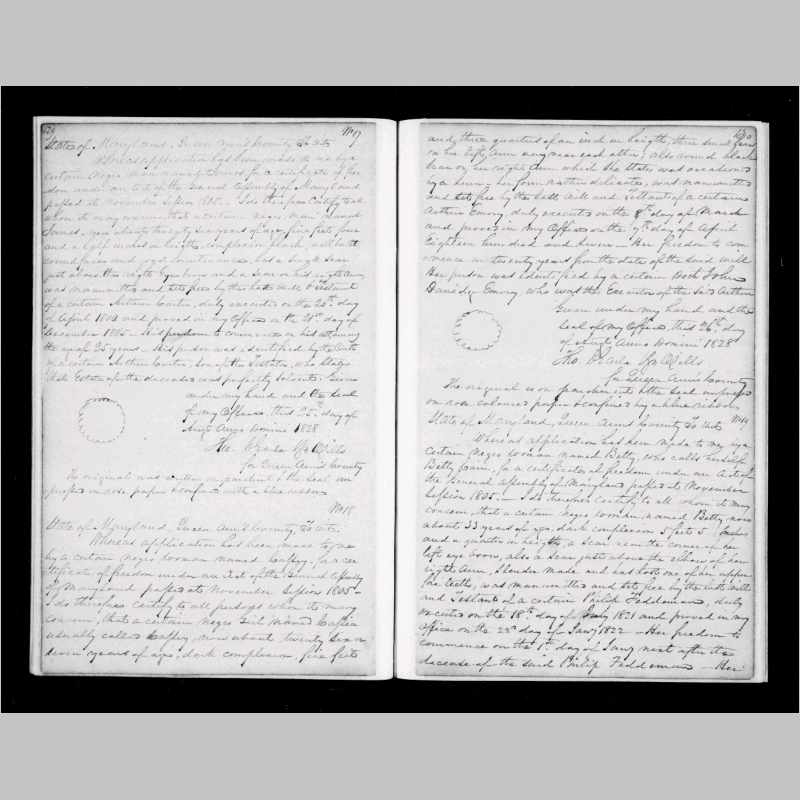 No 17
State of Maryland, Queen Ann's County to wit
Whereas application has been made to me by a
certain negro man named James for a certificate of free
dom under an act of the General Assembly of Maryland
passed at November Session 1805 I do therefore certify to all
whom it may concern that a certain negro man named
James, now about twenty six years of age, five feet four
and a half inches in height, complexion black, well built
round face and good countenance, has a large scar
just above the right eye brow and a scar on his right
was manumitted and set free by the last Will & Testament
of a certain Arthur Carter, duly executed on the 20th day
of April 1803 and proved in my Office on the 21st day of
December 1805 his freedom to commence on his attaining
the age of 25 years his person was identified by the Oath
of a certain Arthur Carter, Son of the Testator, who States
that the Estate of the deceased was perfectly Solvent. Given
under my hand and the Seal
of my Office, this 25th day of
Augt Anno Domini 1828
Tho. C Earle Rg Wills
for Queen Ann's County
The original was written on parchment & the Seal im
pressed on rose paper & confined with a blue ribbon
No 18
State of Maryland, Queen Ann's County, to wit.
Whereas application has been made to me
by a certain negro woman named for a cer
tificate of freedom under an Act of the General Assembly
of Maryland passed at November Session 1805
I do therefore certify to all persons whom it may
concern, that a certain negro Girl named
usually called now about twenty
seven years of age, dark complexion, five feet
and three quarters of an inch in height, three small
on her left Arm very near each other, also round black
Scar on her right Arm which she States was occasioned
by a burn, her form rather delicate, was manumitted
and set free by the last Will and Testament of a certain
Arthur Emory, duly executed on the 8th day of March
and proved in my Office on the 9th day of April
Eighteen hundred and seven Her freedom to com
mence in twenty years from the date of the said Will
Her person was identified by a certain John
Emory who was the Executor of the said Arthur
Given under my hand and the
Seal of my Office, this 26th day
of Augt Anno Domini 1828
Tho. C Earle Rg Wills
for Queen Ann's County
The original is on parchment & the Seal impressed
on rose coloured paper & confined by a blue ribbon
No 19
State of Maryland, Queen Ann's County to wit
Whereas application has been made to me by a
certain negro woman named Betty, who calls herself
Betty for a certificate of freedom under an Act of
the General Assembly of Maryland passed at November
Session 1805 I do therefore Certify to all whom it may
concern, that a certain negro woman, named Betty, now
about 33 years of age, dark complexion 5 feet 5 Inches
and a quarter in height, a scar near the corner of her
left eye brow, also a scar just above the elbow of her
right Arm, slender made and has lost one of her upper
fore teeth, was manumitted and set free by the last will
and Testament of a certain Philip Feddeman, duly
executed on the 18th day of July 1821 and proved in my
Office on the 22d day of Jany 1822 Her freedom to
commence on the 1st day of Jany next after the
decease of the said Philip Feddeman Her